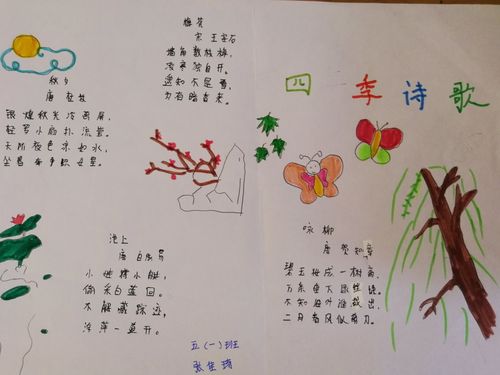 四季诗歌
梅花
宋 王安石
墙角数枝梅,
凌寒独自开。
遥知不是雪,
为有暗香来。
秋夕
唐 杜牧
银烛秋光冷画屏,
轻罗小扇扑流萤。
天阶夜色凉如水,
坐看牵牛织女星。
池上
唐 白居易
小娃撑小艇,
偷采白莲回。
不解藏踪迹,
浮萍一道开。
咏柳
唐 贺知章
碧玉妆成一树高,
万条垂下绿丝绦。
不知细叶谁裁出,
二月春风似剪刀。
五(一)班
张佳